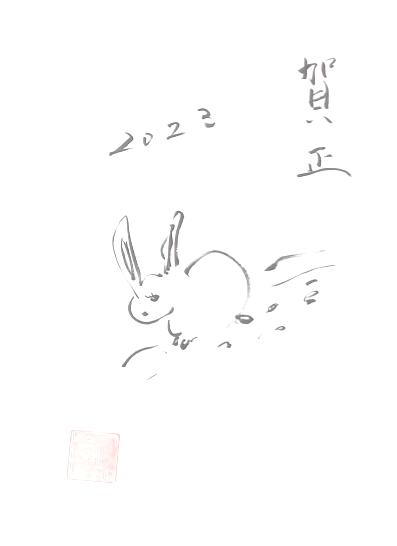 賀正
2023